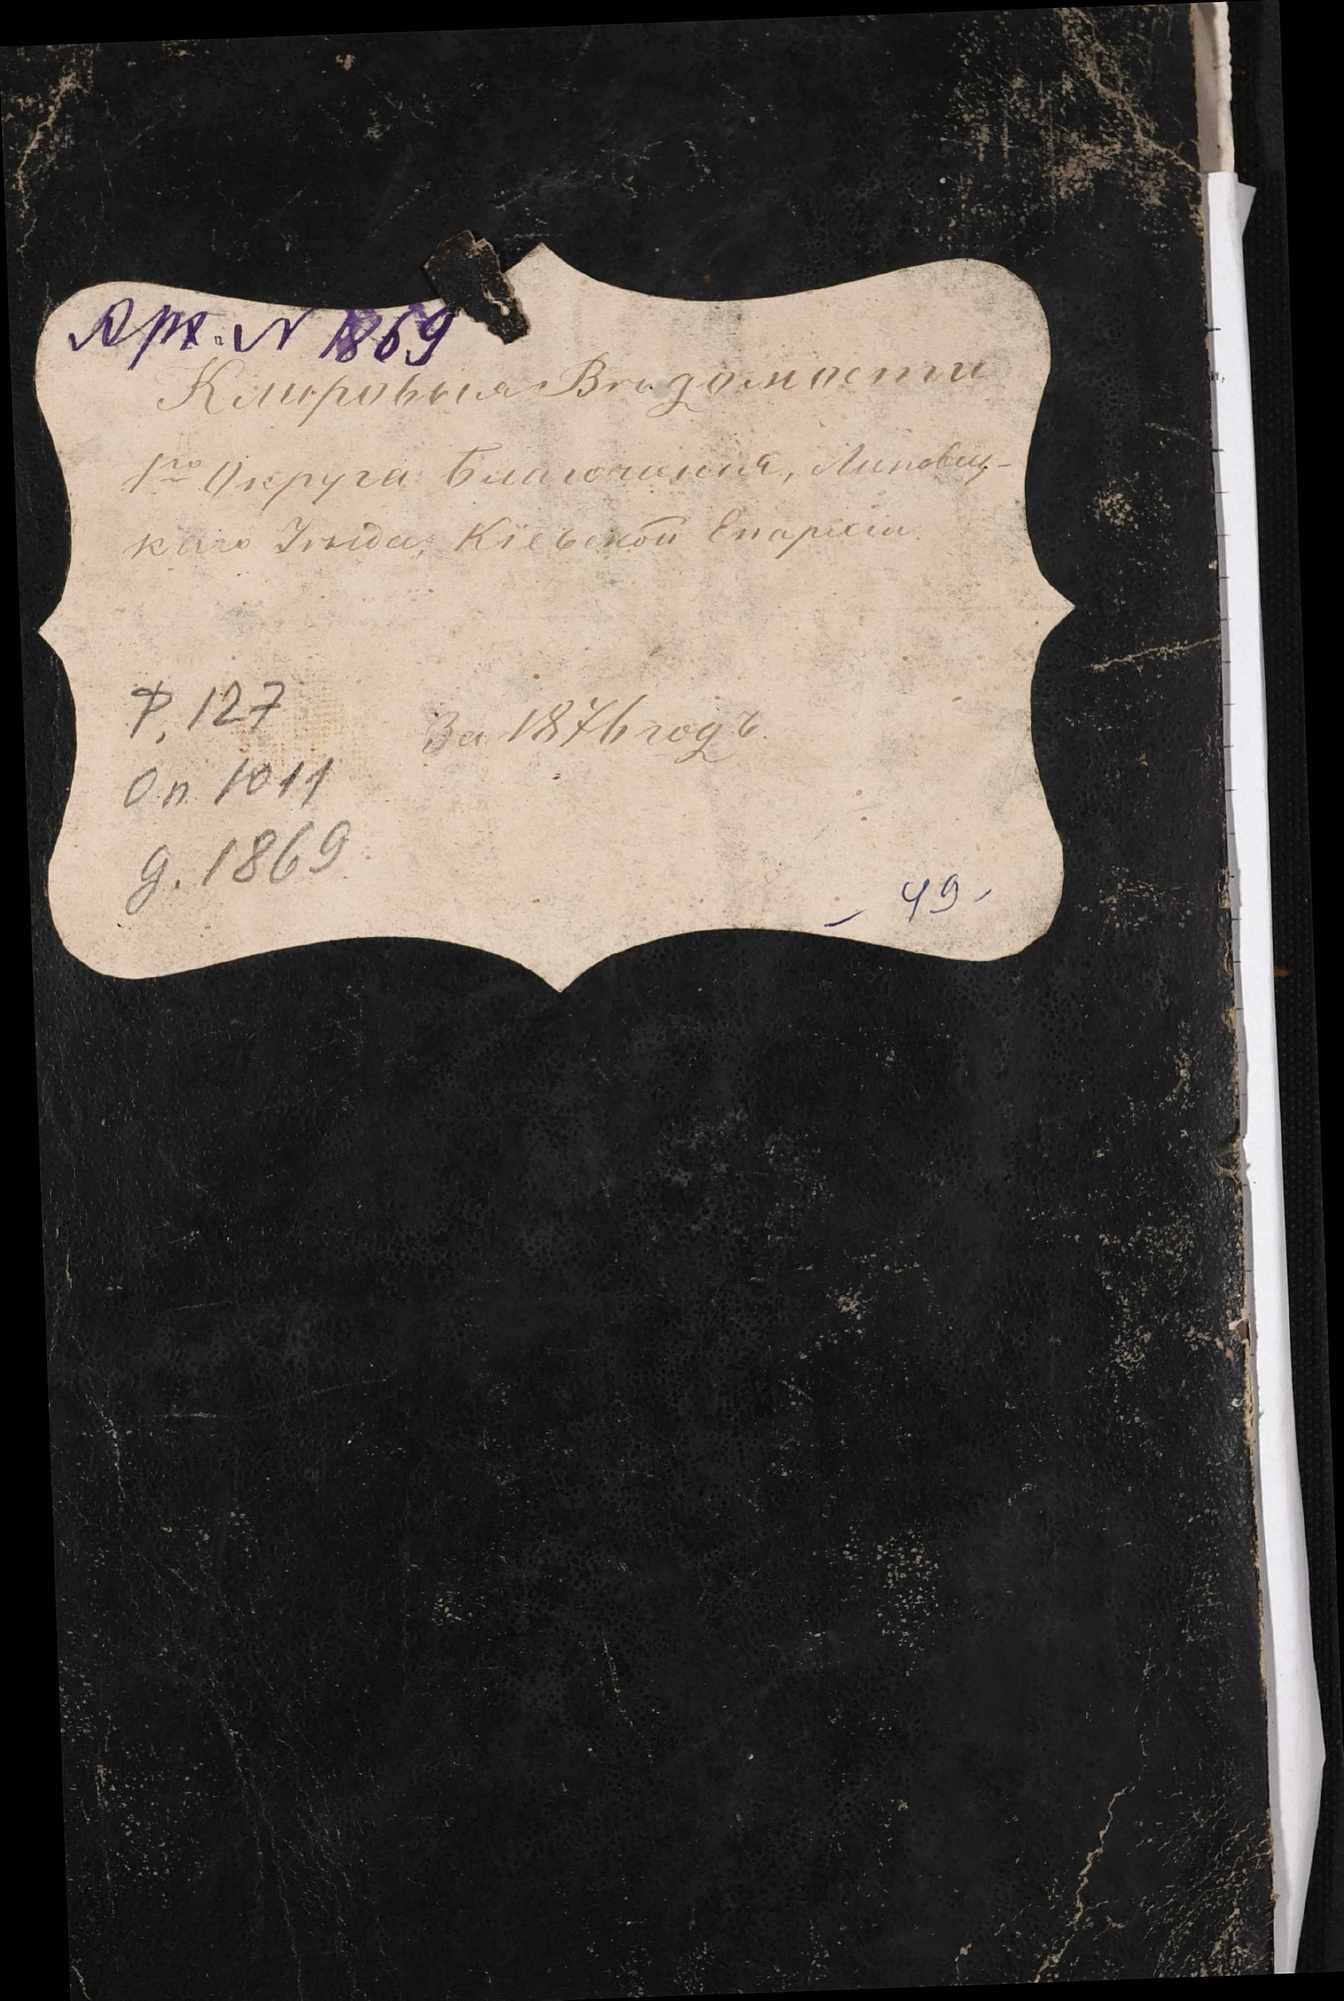 Арх. N 1869
Клировыя Вѣдомости
1го Округа Благочинія, Липовец-
каго Уѣзда, Кіевской Епархіи
За 1876 годъ.
Ф. 127
Оп. 1011
д. 1869
- 49 -